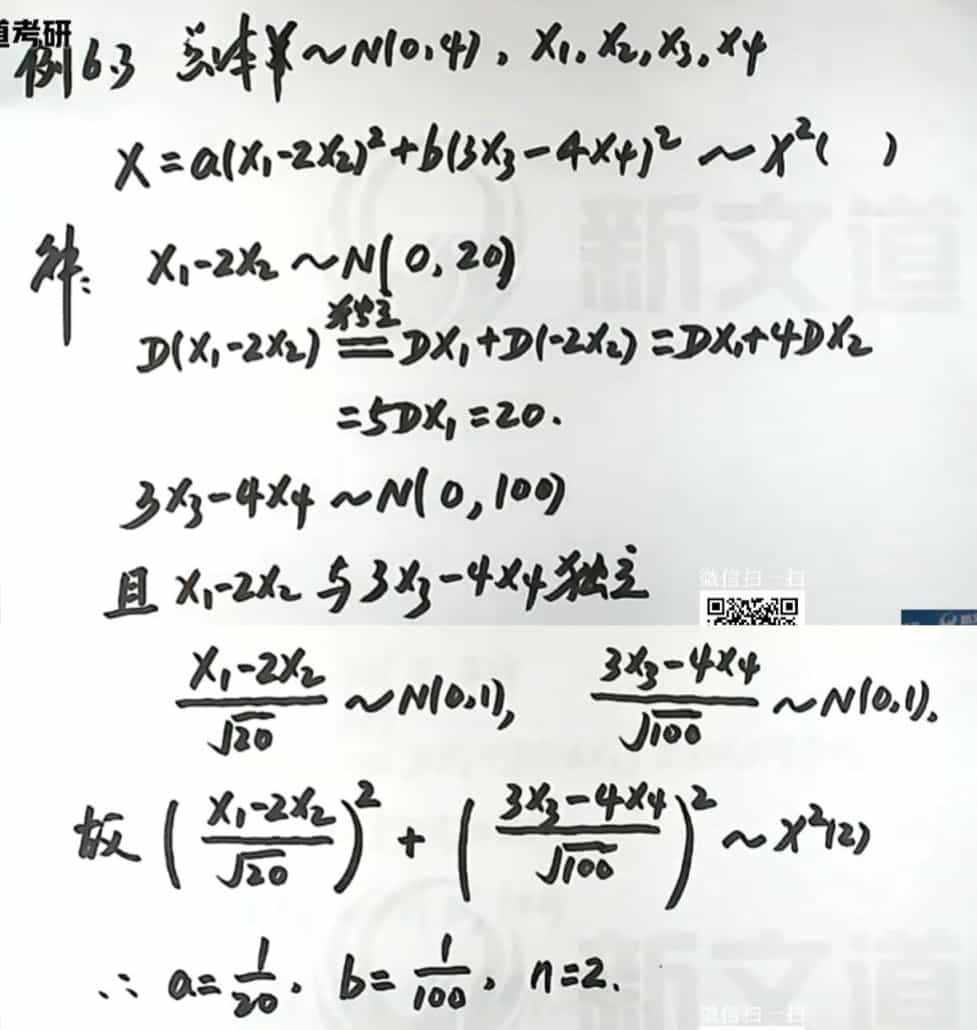 道考研
例6.3 总体X~N(0,4), X₁, X₂, X₃, X₄
X=a(X₁-2X₂)²+b(3X₃-4X₄)² ~ χ²( )
解: X₁-2X₂ ~ N(0, 20)
独立
D(X₁-2X₂) = DX₁+D(-2X₂) = DX₁+4DX₂
=5DX₁=20.
3X₃-4X₄ ~ N(0, 100)
且 X₁-2X₂ 与 3X₃-4X₄ 独立
微信扫一扫
(X₁-2X₂)/√20 ~ N(0,1), (3X₃-4X₄)/√100 ~ N(0,1).
故 ((X₁-2X₂)/√20)² + ((3X₃-4X₄)/√100)² ~ χ²(2)
∴ a=1/20, b=1/100, n=2.
新文道
新文道
微信扫一扫